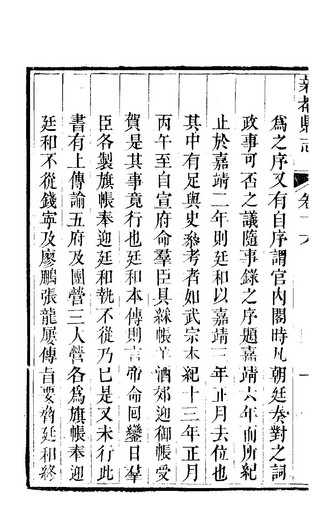 新都縣志
卷十六
一
爲之序又有自序謂官內閣時凡朝廷奏對之詞
政事可否之議隨事錄之序題嘉靖六年而所紀
止於嘉靖二年則廷和以嘉靖三年正月去位也
其中有足與史參考者如武宗本紀十三年正月
丙午至自宣府命羣臣具綵帳羊酒郊迎御帳受
賀是其事竟行也廷和本傳則言帝命回鑾日羣
臣各製旗帳奉迎廷和執不從乃已是又未行此
書有上傳諭五府及團營三人營各爲旗帳奉迎
廷和不從錢寧及廖鵬張龍屢傳旨要脅廷和終